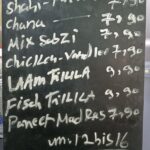 Shahi- 7,90
Chana 7,90
Mix Sabzi 7,90
Chicken- 7,90
LAAM TIKKA 9,90
Fisch TIKKA 9,90
Paneer Madras 7,90
um. 12 bis 16